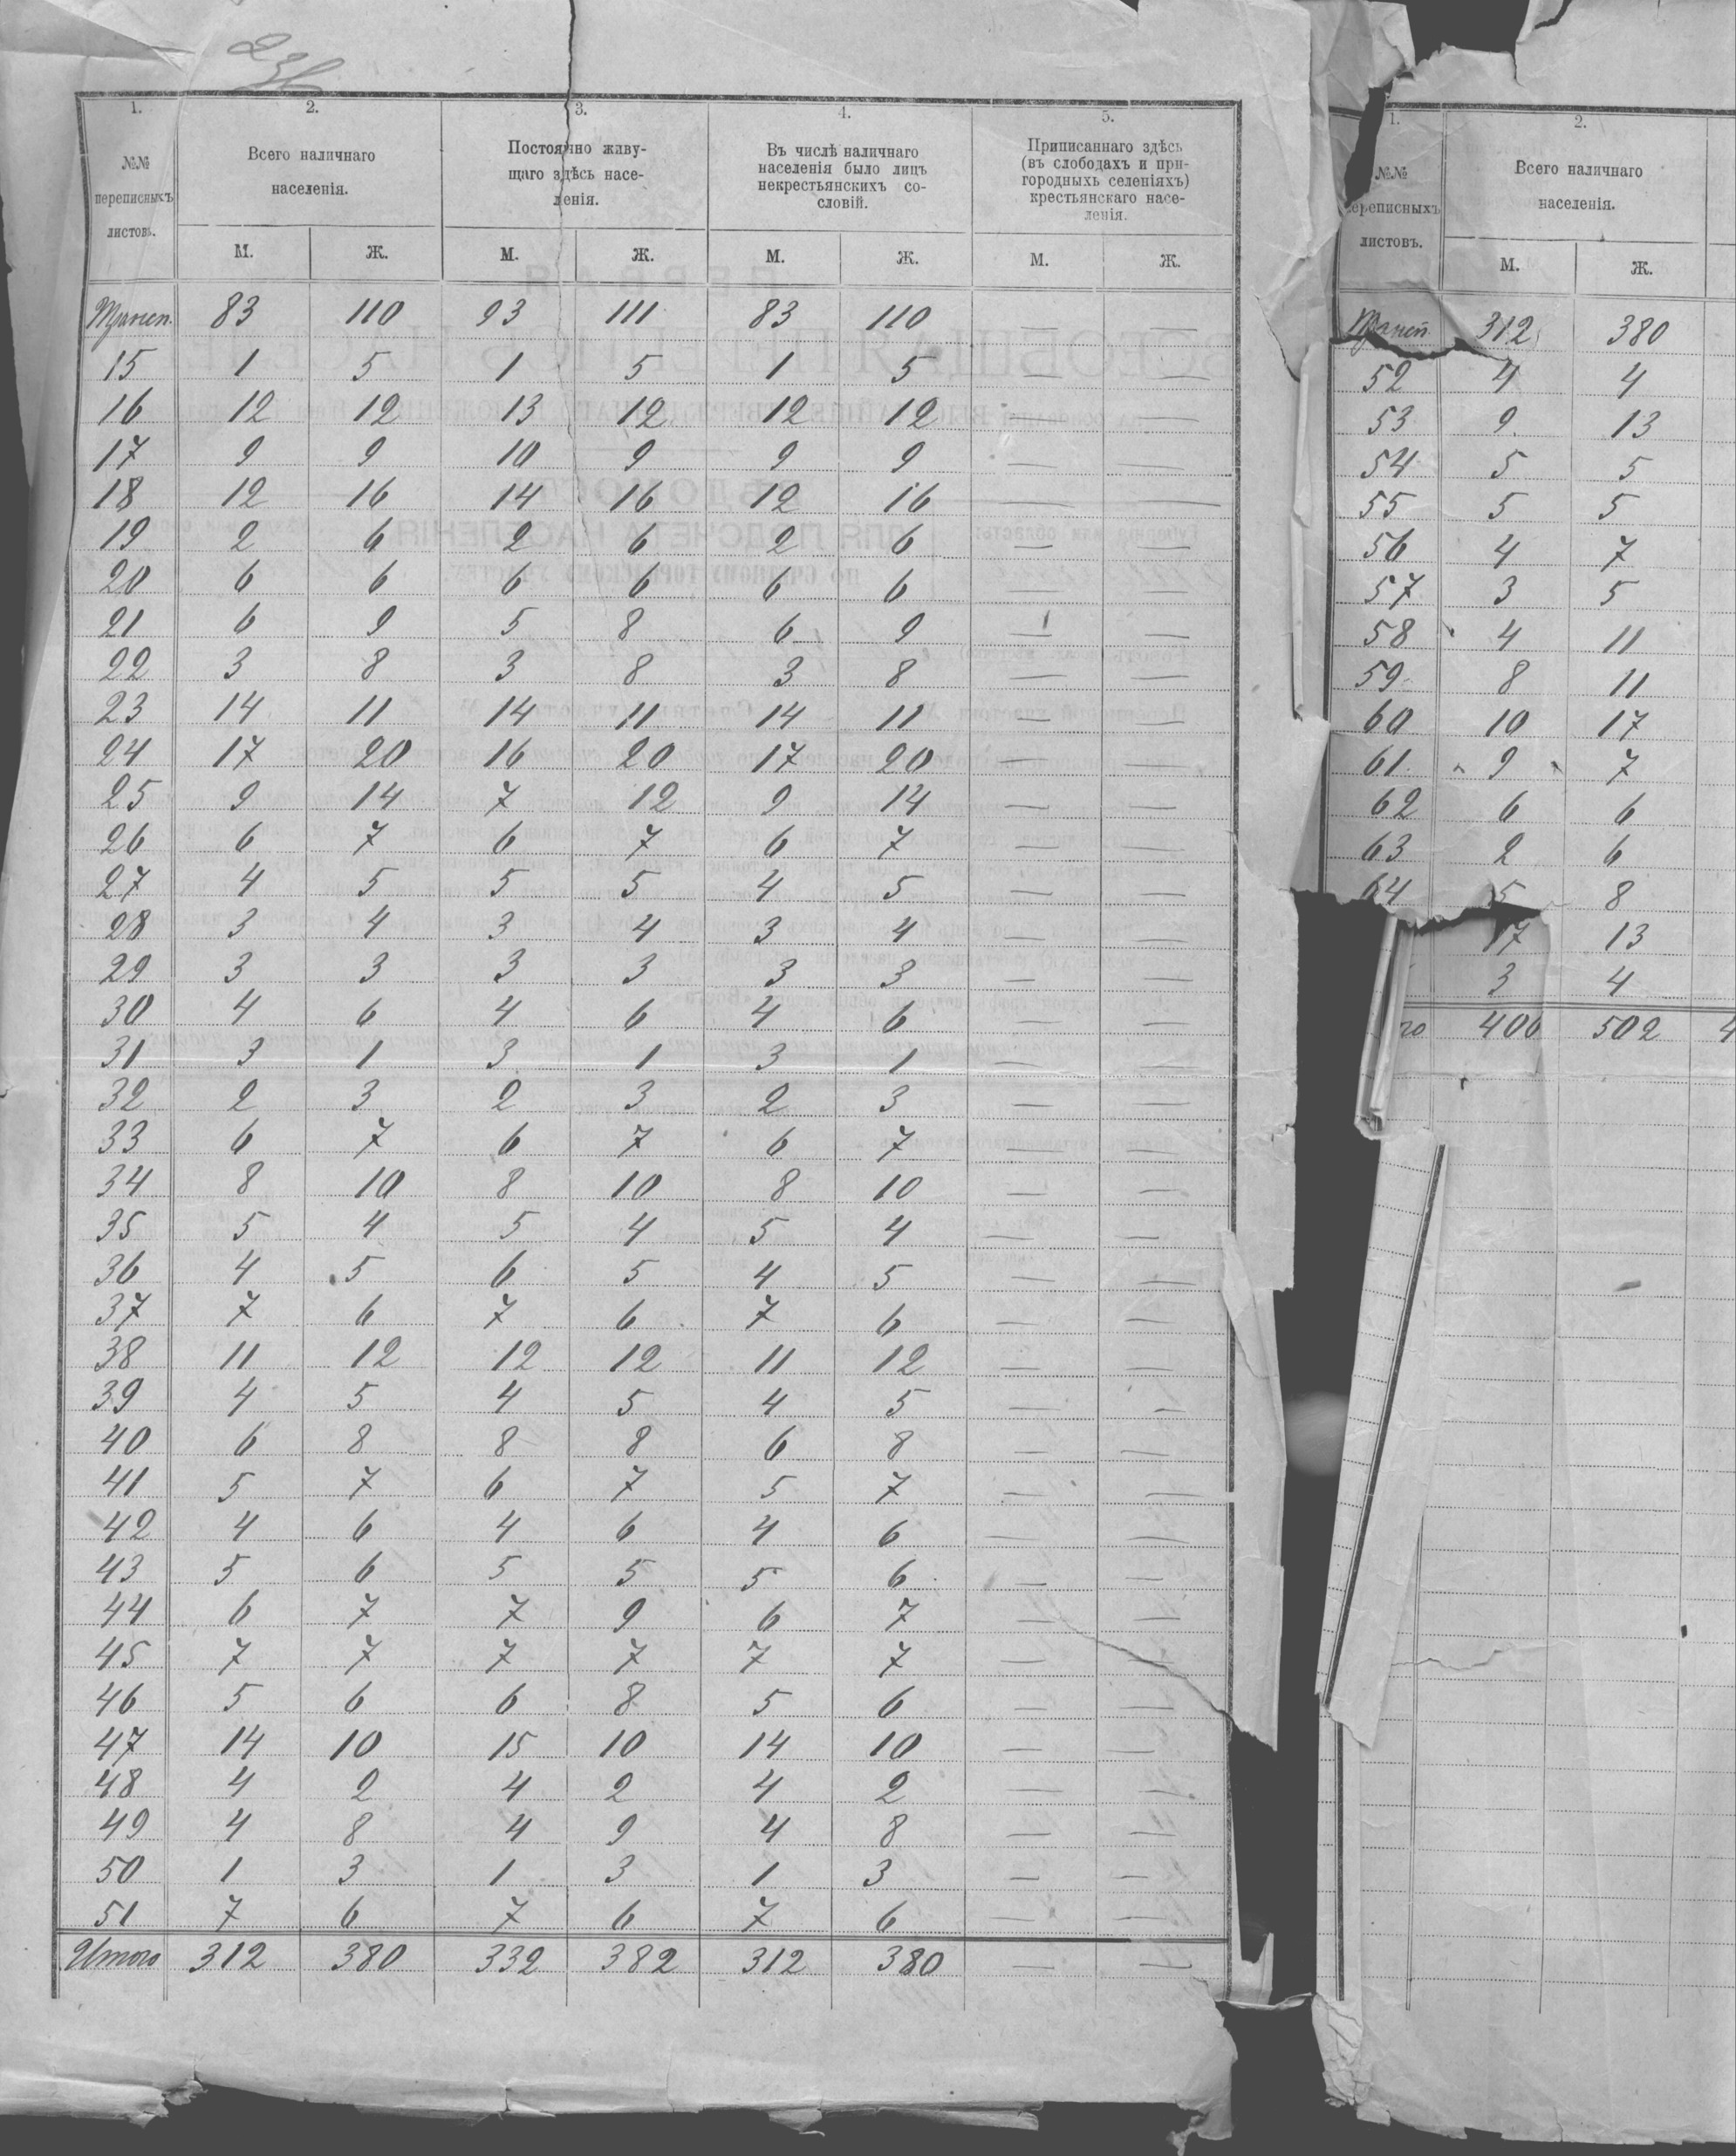 236
1. 2. 3. 4. 5.
№№ переписныхъ листовъ.
Всего наличнаго населенія.
Постоянно живущаго здѣсь населенія.
Въ числѣ наличнаго населенія было лицъ некрестьянскихъ сословій.
Приписаннаго здѣсь (въ слободахъ и пригородныхъ селеніяхъ) крестьянскаго населенія.
М. Ж. М. Ж. М. Ж. М. Ж.
Трансп. 83 110 93 111 83 110 — —
15 1 5 1 5 1 5 — —
16 12 12 13 12 12 12 — —
17 9 9 10 9 9 9 — —
18 12 16 14 16 12 16 — —
19 2 6 2 6 2 6 — —
20 6 6 6 6 6 6 — —
21 6 9 5 8 6 9 — —
22 3 8 3 8 3 8 — —
23 14 11 14 11 14 11 — —
24 17 20 16 20 17 20 — —
25 9 14 7 12 9 14 — —
26 6 7 6 7 6 7 — —
27 4 5 5 5 4 5 — —
28 3 4 3 4 3 4 — —
29 3 3 3 3 3 3 — —
30 4 6 4 6 4 6 — —
31 3 1 3 1 3 1 — —
32 2 3 2 3 2 3 — —
33 6 7 6 7 6 7 — —
34 8 10 8 10 8 10 — —
35 5 4 5 4 5 4 — —
36 4 5 6 5 4 5 — —
37 7 6 7 6 7 6 — —
38 11 12 12 12 11 12 — —
39 4 5 4 5 4 5 — —
40 6 8 8 8 6 8 — —
41 5 7 6 7 5 7 — —
42 4 6 4 6 4 6 — —
43 5 6 5 5 5 6 — —
44 6 7 7 9 6 7 — —
45 7 7 7 7 7 7 — —
46 5 6 6 8 5 6 — —
47 14 10 15 10 14 10 — —
48 4 2 4 2 4 2 — —
49 4 8 4 9 4 8 — —
50 1 3 1 3 1 3 — —
51 7 6 7 6 7 6 — —
Итого 312 380 332 382 312 380 — —
1. 2.
№№ переписныхъ листовъ.
Всего наличнаго населенія.
М. Ж.
Трансп. 312 380
52 4 4
53 9 13
54 5 5
55 5 5
56 4 7
57 3 5
58 4 11
59 8 11
60 10 17
61 9 7
62 6 6
63 2 6
64 5 8
17 13
3 4
го 406 502 4